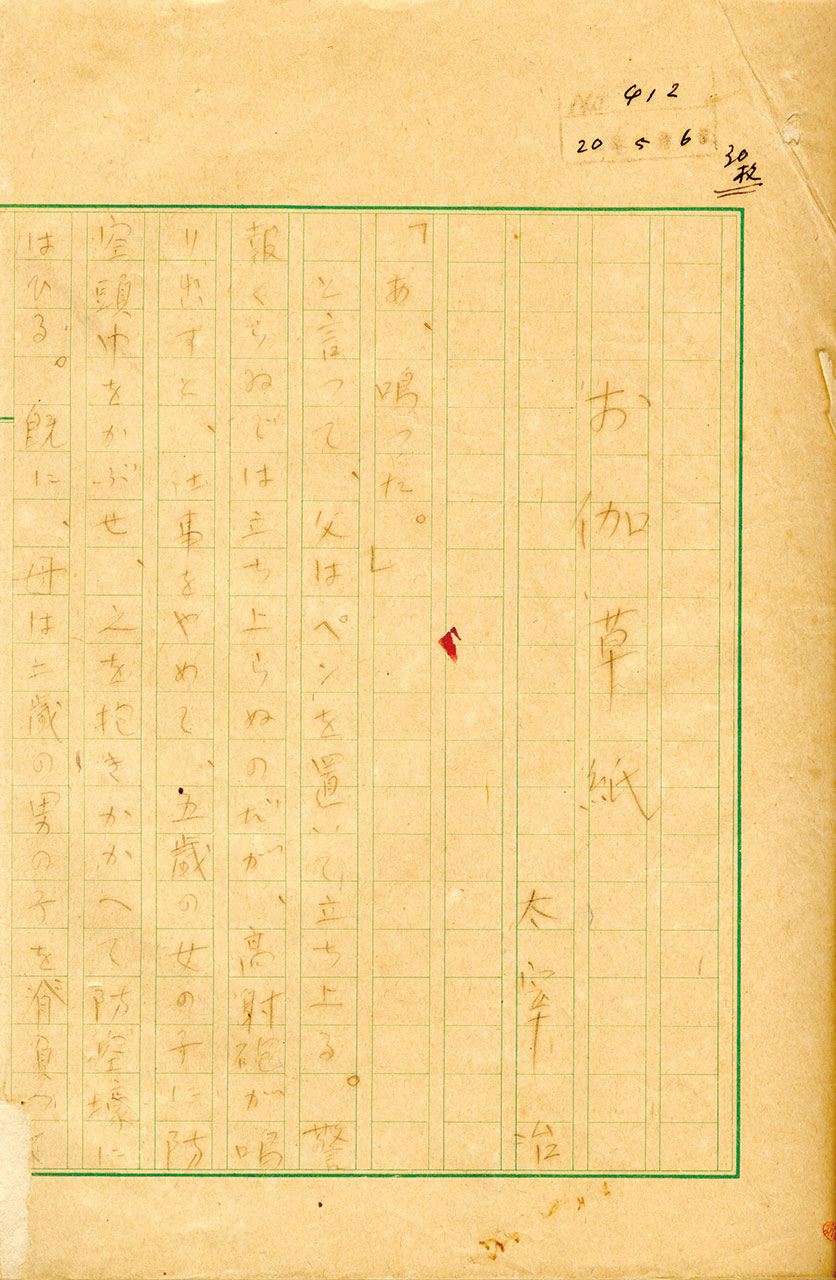 412
20 5 6
30枚
お伽草紙
太宰治
「あ、鳴った。」
と言って、父はペンを置いて立ち上る。警
報くらゐでは立ち上らぬのだが、高射砲が鳴
り出すと、仕事をやめて、五歳の女の子に防
空頭巾をかぶせ、之を抱きかかへて防空壕に
はひる。既に、母は二歳の男の子を脊負つて